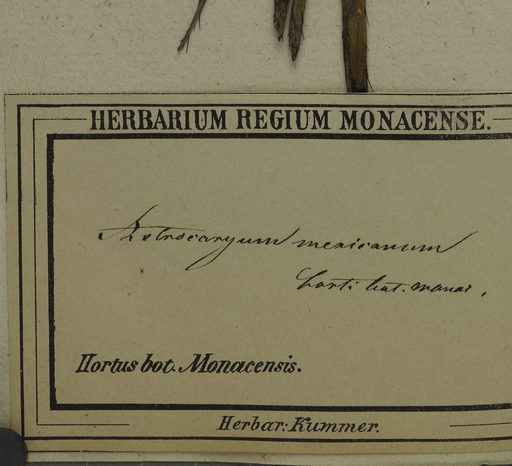 HERBARIUM REGIUM MONACENSE.
Astrocaryum mexicanum
horti bot. monac.
Hortus bot. Monacensis.
Herbar: Kummer.